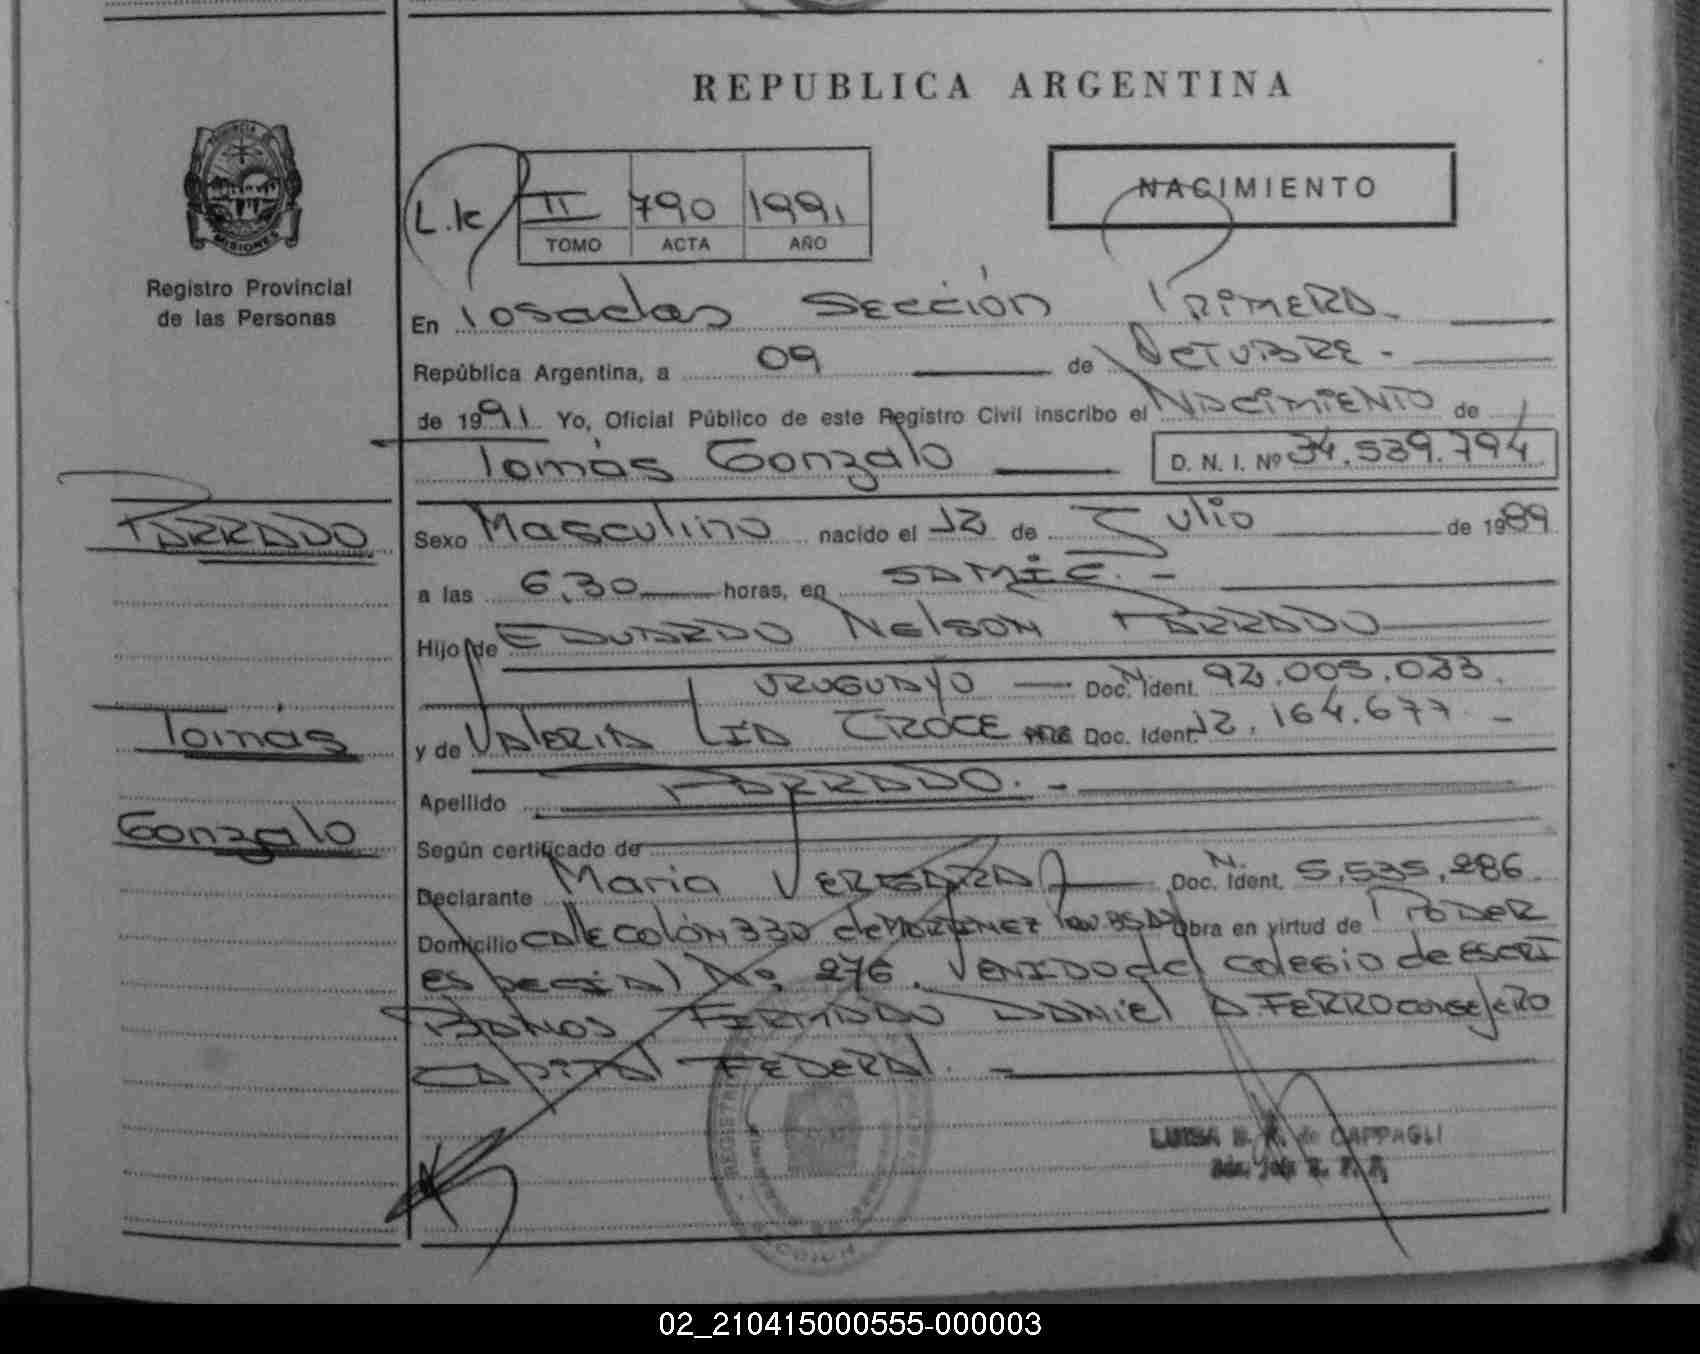 REPUBLICA ARGENTINA
PROVINCIA DE
MISIONES
Registro Provincial
de las Personas
L.K
II 790 1991
TOMO ACTA AÑO
NACIMIENTO
En Posadas Sección Primera
República Argentina, a 09 de Octubre.-
de 1991 Yo, Oficial Público de este Registro Civil inscribo el Nacimiento de
Tomás Gonzalo D. N. I. Nº 34.539.794
PARRADO
Sexo Masculino nacido el 12 de Julio de 1989
a las 6,30 horas, en SAMIC.-
Hijo de Eduardo Nelson Parrado
Uruguayo Doc. N. Ident. 92.005.033.
Tomás
y de Valeria Lia Croce Doc. Ident. 12.164.677.-
Apellido PARRADO.-
Gonzalo
Según certificado de
Declarante Maria Doc. N. Ident. 5.535.286
Domicilio calle Colón 330 de Martinez obra en virtud de Poder
especial No. 276. Venido del colegio de escri
banos Firmado Daniel A. Ferro consejero
Capital Federal.-
LUISA de CAPPAGLI
02_210415000555-000003